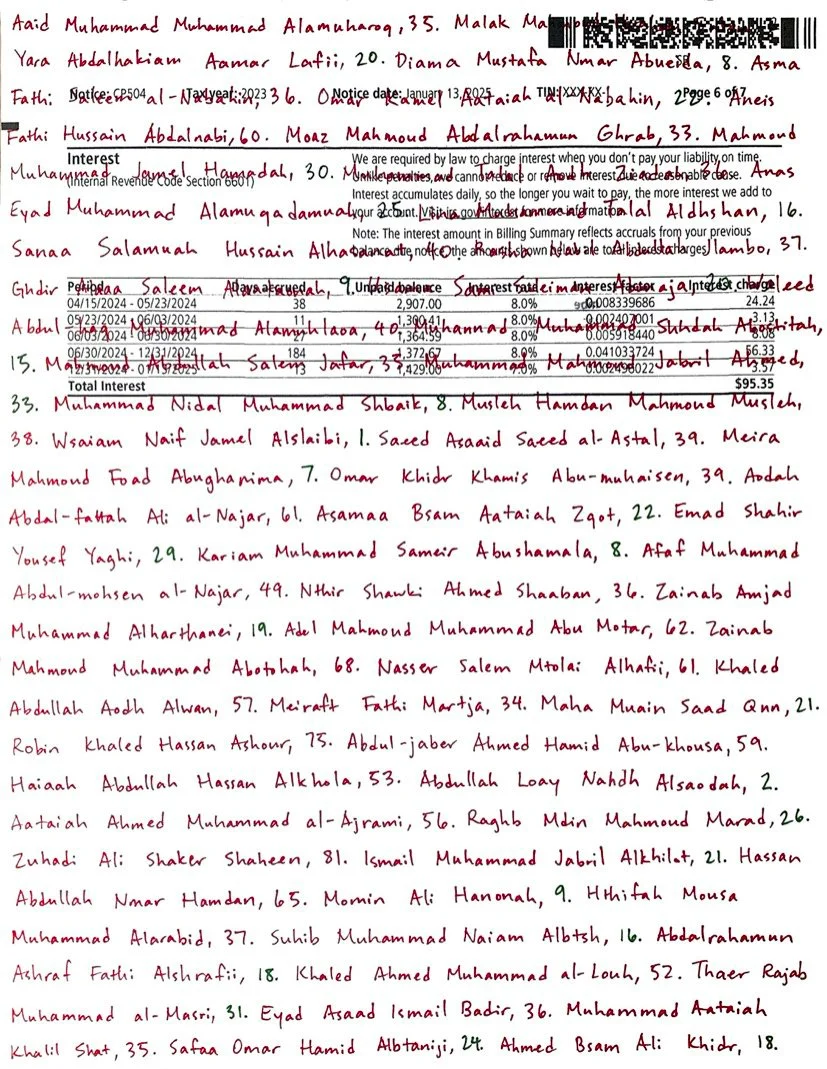 Aaid Muhammad Muhammad Alamuharoq, 35. Malak
Yara Abdalhakiam Aamar Lafii, 20. Diama Mustafa Nmar Abueda, 8. Asma
Notice: CP504 Tax year: 2023 Notice date: January 13, 2025 TIN: XXX-XX- Page 6 of 7
Fathi Saleem al-Nabahin, 36. Omar Kamel Aataiah al-Nabahin, Aneis
Fathi Hussain Abdalnabi, 60. Moaz Mahmoud Abdalrahamun Ghrab, 33. Mahmoud
Interest
(Internal Revenue Code Section 6601)
We are required by law to charge interest when you don't pay your liability on time.
Unlike penalties, we cannot reduce or remove interest due to reasonable cause.
Interest accumulates daily, so the longer you wait to pay, the more interest we add to
your account. Visit irs.gov/interest for more information.
Note: The interest amount in Billing Summary reflects accruals from your previous
balance due notice; the amounts shown below are total interest charges.
Muhammad Jamel Hamadah, 30. Anas
Eyad Muhammad Alamuqadamuah, 25. Lina Muhammad Talal Aldhshan, 16.
Sanaa Salamuah Hussain 40. 37.
Ghdir Saleem 9.
Period Days accrued Unpaid balance Interest rate Interest factor Interest charge
04/15/2024 - 05/23/2024 38 2,907.00 8.0% 0.008339686 24.24
05/23/2024 - 06/03/2024 11 1,300.41 8.0% 0.002407001 3.13
06/03/2024 - 06/30/2024 27 1,364.59 8.0% 0.005918440 8.08
06/30/2024 - 12/31/2024 184 1,372.67 8.0% 0.041033724 56.33
12/31/2024 - 13 1,429.00 7.0% 0.002496022 3.57
Total Interest $95.35
Abdul-haq Muhammad Alamuhlaoa, 40. Muhannad Muhammad Shhdah Abostitah,
15. Mahmoud Abdullah Salem Jafar, 35. Muhammad Mahmoud Jabril Ahmed,
33. Muhammad Nidal Muhammad Shbaik, 8. Musleh Hamdan Mahmoud Musleh,
38. Wsaiam Naif Jamel Alslaibi, 1. Saeed Asaaid Saeed al-Astal, 39. Meira
Mahmoud Foad Abughanima, 7. Omar Khidr Khamis Abu-muhaisen, 39. Aodah
Abdal-fattah Ali al-Najar, 61. Asamaa Bsam Aataiah Zqot, 22. Emad Shahir
Yousef Yaghi, 29. Kariam Muhammad Sameir Abushamala, 8. Afaf Muhammad
Abdul-mohsen al-Najar, 49. Nthir Shawki Ahmed Shaaban, 36. Zainab Amjad
Muhammad Alharthanei, 19. Adel Mahmoud Muhammad Abu Motar, 62. Zainab
Mahmoud Muhammad Abotohah, 68. Nasser Salem Mtolai Alhafii, 61. Khaled
Abdullah Aodh Alwan, 57. Meiraft Fathi Martja, 34. Maha Muain Saad Qnn, 21.
Robin Khaled Hassan Ashour, 75. Abdul-jaber Ahmed Hamid Abu-khousa, 59.
Haiaah Abdullah Hassan Alkhola, 53. Abdullah Loay Nahdh Alsaodah, 2.
Aataiah Ahmed Muhammad al-Ajrami, 56. Raghb Mdin Mahmoud Marad, 26.
Zuhadi Ali Shaker Shaheen, 81. Ismail Muhammad Jabril Alkhilat, 21. Hassan
Abdullah Nmar Hamdan, 65. Momin Ali Hanonah, 9. Hthifah Mousa
Muhammad Alarabid, 37. Suhib Muhammad Naiam Albtsh, 16. Abdalrahamun
Ashraf Fathi Alshrafii, 18. Khaled Ahmed Muhammad al-Louh, 52. Thaer Rajab
Muhammad al-Masri, 31. Eyad Asaad Ismail Badir, 36. Muhammad Aataiah
Khalil Shat, 35. Safaa Omar Hamid Albtaniji, 24. Ahmed Bsam Ali Khidr, 18.